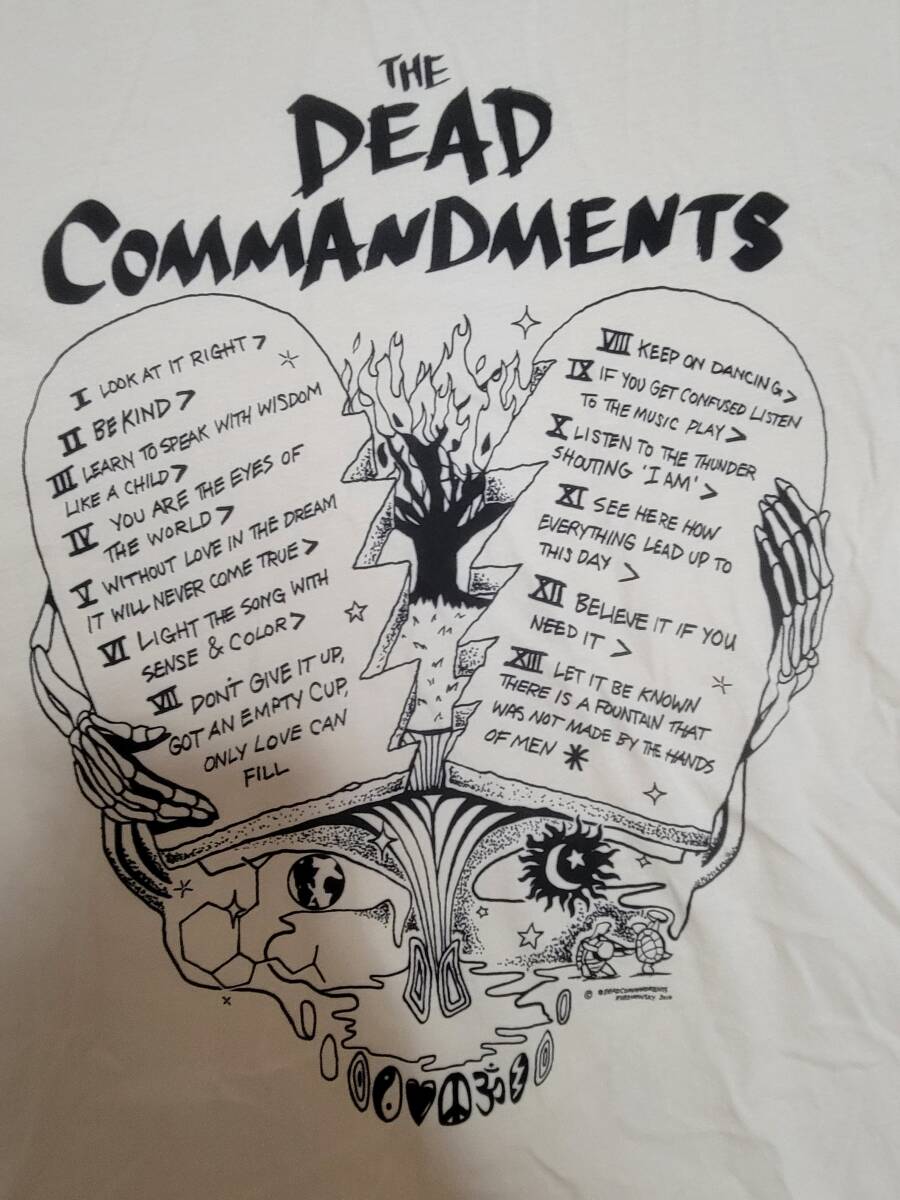 THE
DEAD
COMMANDMENTS
I LOOK AT IT RIGHT >
II BE KIND >
III LEARN TO SPEAK WITH WISDOM
LIKE A CHILD >
IV YOU ARE THE EYES OF
THE WORLD >
V WITHOUT LOVE IN THE DREAM
IT WILL NEVER COME TRUE >
VI LIGHT THE SONG WITH
SENSE & COLOR >
VII DON'T GIVE IT UP,
GOT AN EMPTY CUP,
ONLY LOVE CAN
FILL
VIII KEEP ON DANCING >
IX IF YOU GET CONFUSED LISTEN
TO THE MUSIC PLAY >
X LISTEN TO THE THUNDER
SHOUTING 'I AM' >
XI SEE HERE HOW
EVERYTHING LEAD UP TO
THIS DAY >
XII BELIEVE IT IF YOU
NEED IT >
XIII LET IT BE KNOWN
THERE IS A FOUNTAIN THAT
WAS NOT MADE BY THE HANDS
OF MEN *
© @DEADCOMMANDMENTS